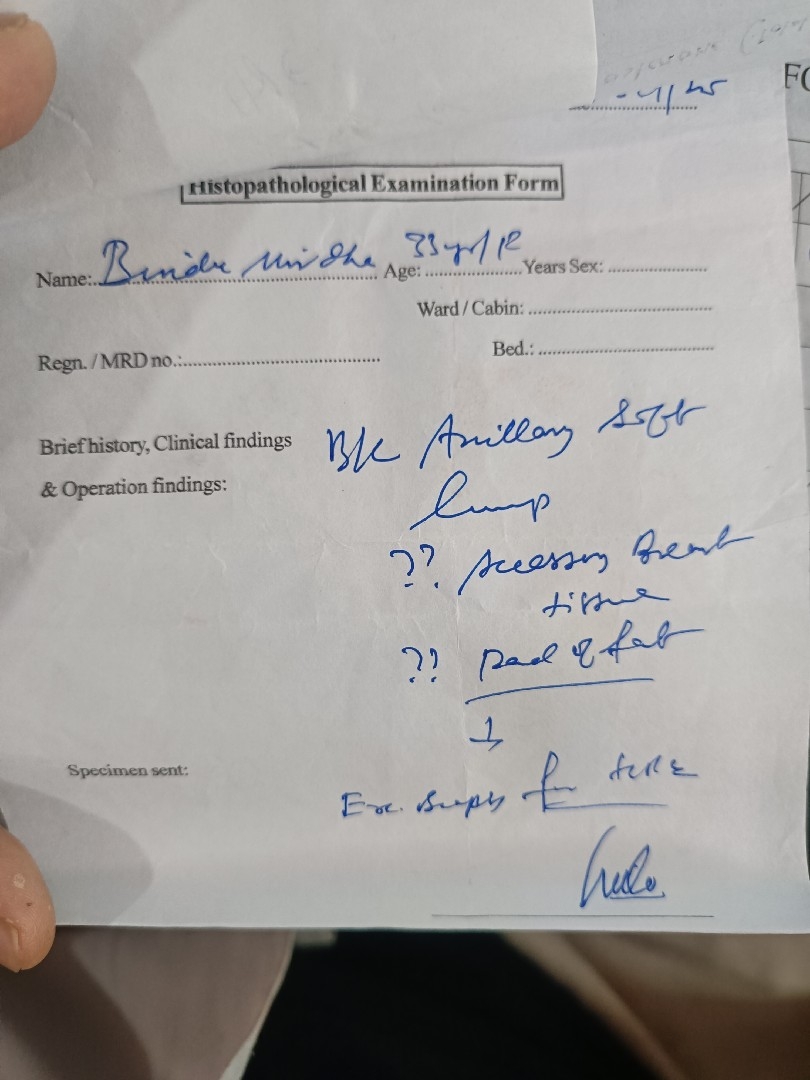 Histopathological Examination Form
Name: Mirdha Age: 33 yr/ Years Sex:
Ward / Cabin:
Regn. / MRD no.: Bed.:
Brief history, Clinical findings B/L Axillary Soft
& Operation findings: lump
?? Accessory Breast
tissue
?? pad of fat
↓
Specimen sent:
Exc. Biopsy for HPE